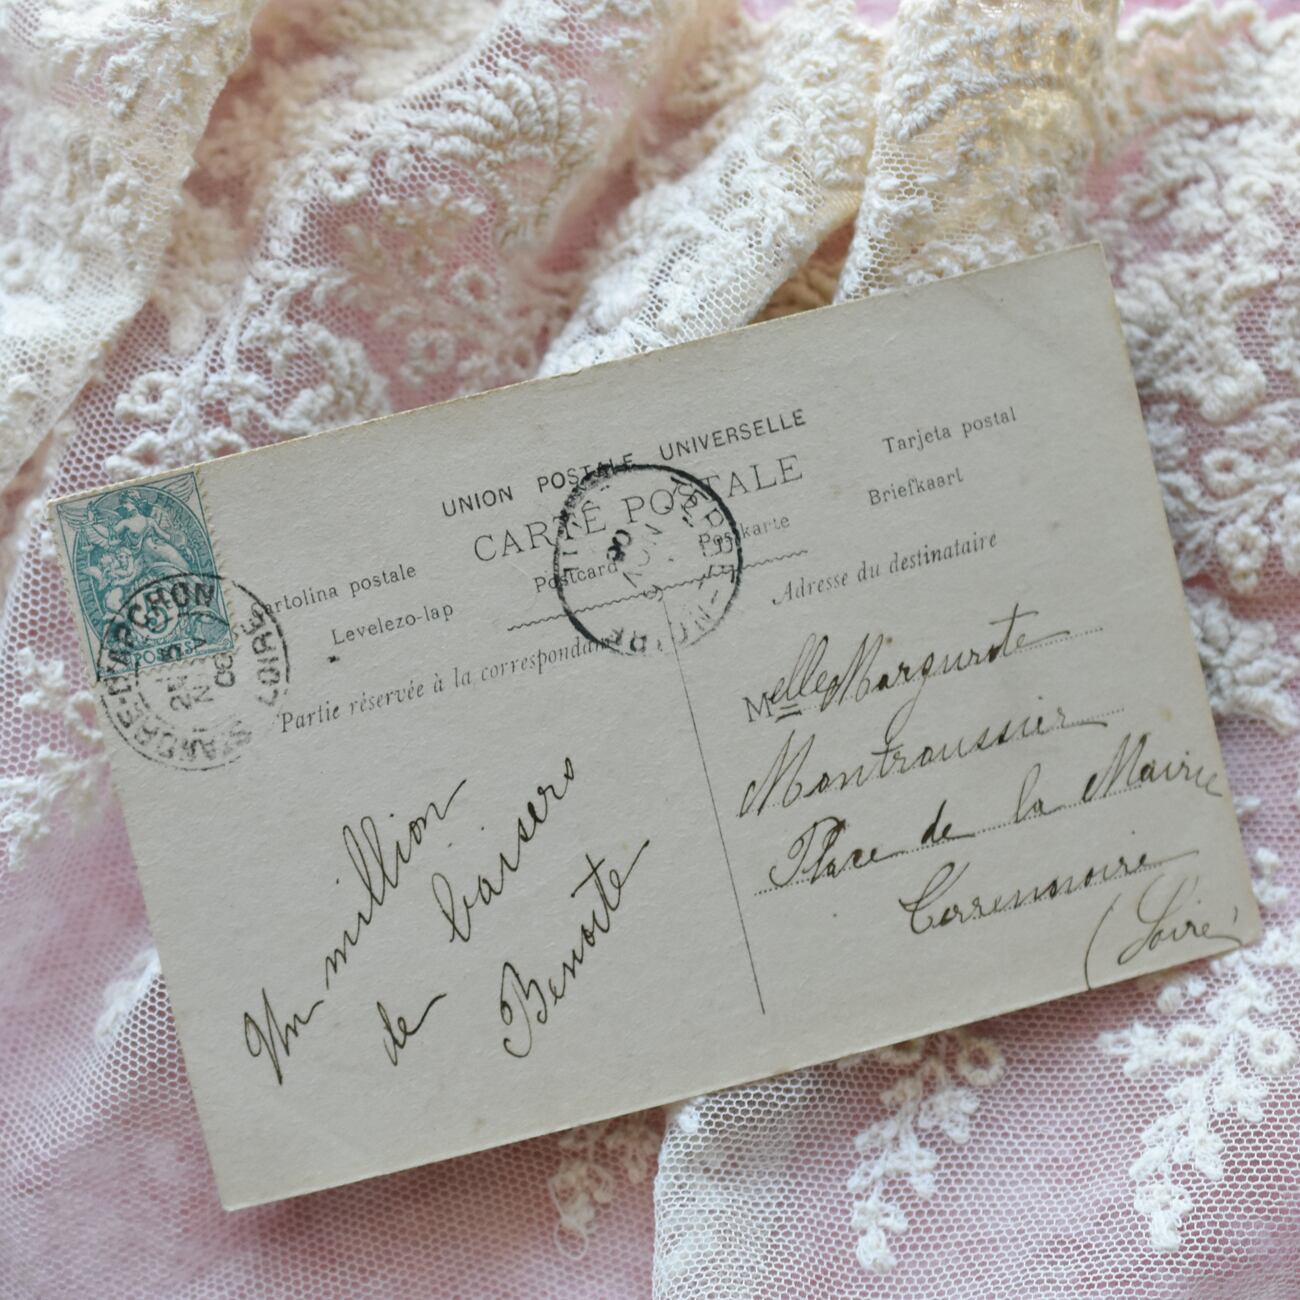 UNION POSTALE UNIVERSELLE
CARTE POSTALE
Tarjeta postal
Cartolina postale
Postcard
Postkarte
Briefkaart
Levelezo-lap
Partie réservée à la correspondance
Adresse du destinataire
POSTES
LOIRE
Un million
de baisers
Benoite
Melle Marguerite
Montroussier
Place de la Mairie
Terrenoire
(Loire)